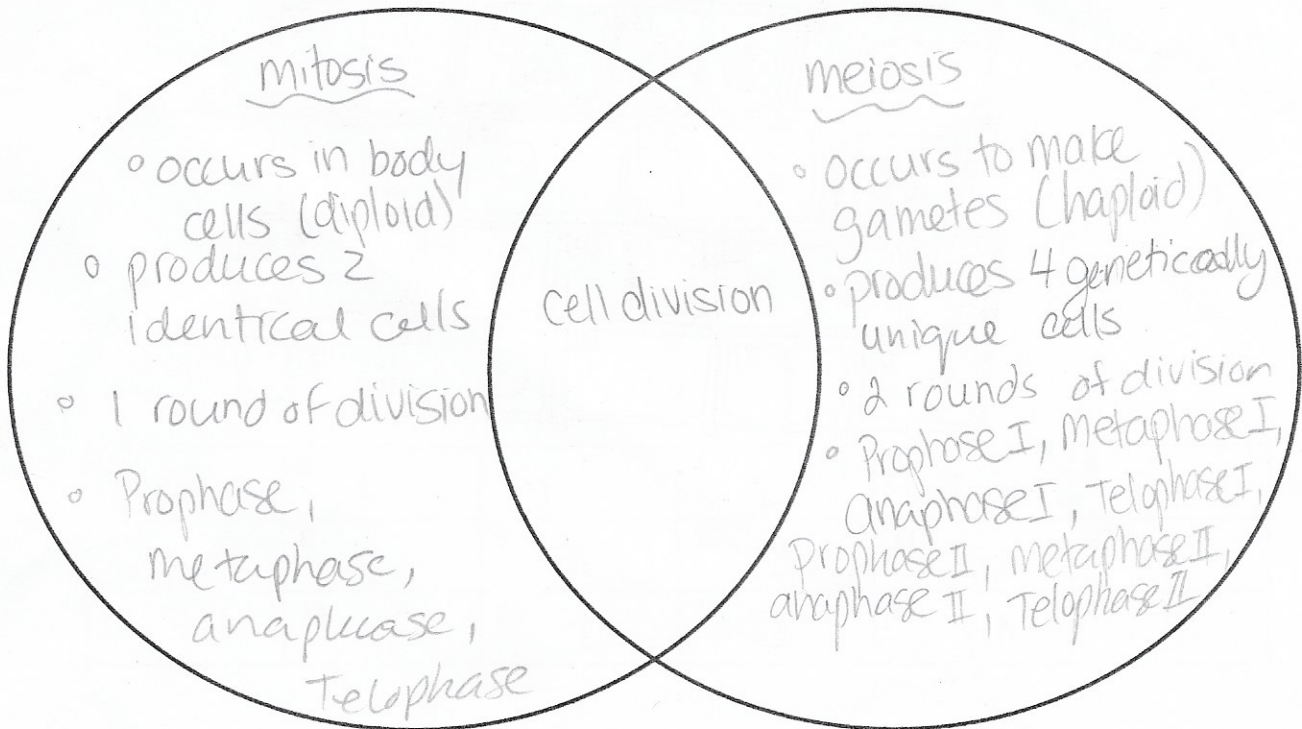 mitosis
° occurs in body
cells (diploid)
° produces 2
identical cells
° 1 round of division
° Prophase,
metaphase,
anaphase,
Telophase
cell division
meiosis
° occurs to make
gametes (haploid)
° produces 4 genetically
unique cells
° 2 rounds of division
° Prophase I, metaphase I,
anaphase I, Telophase I,
prophase II, metaphase II,
anaphase II, Telophase II